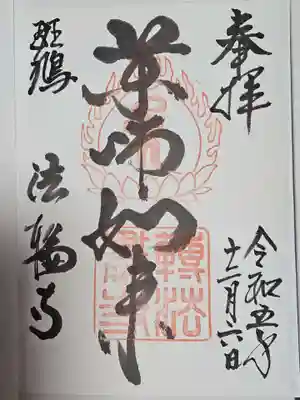 奉拝
令和五年
十二月六日
薬师如来
斑鳩
法輪寺